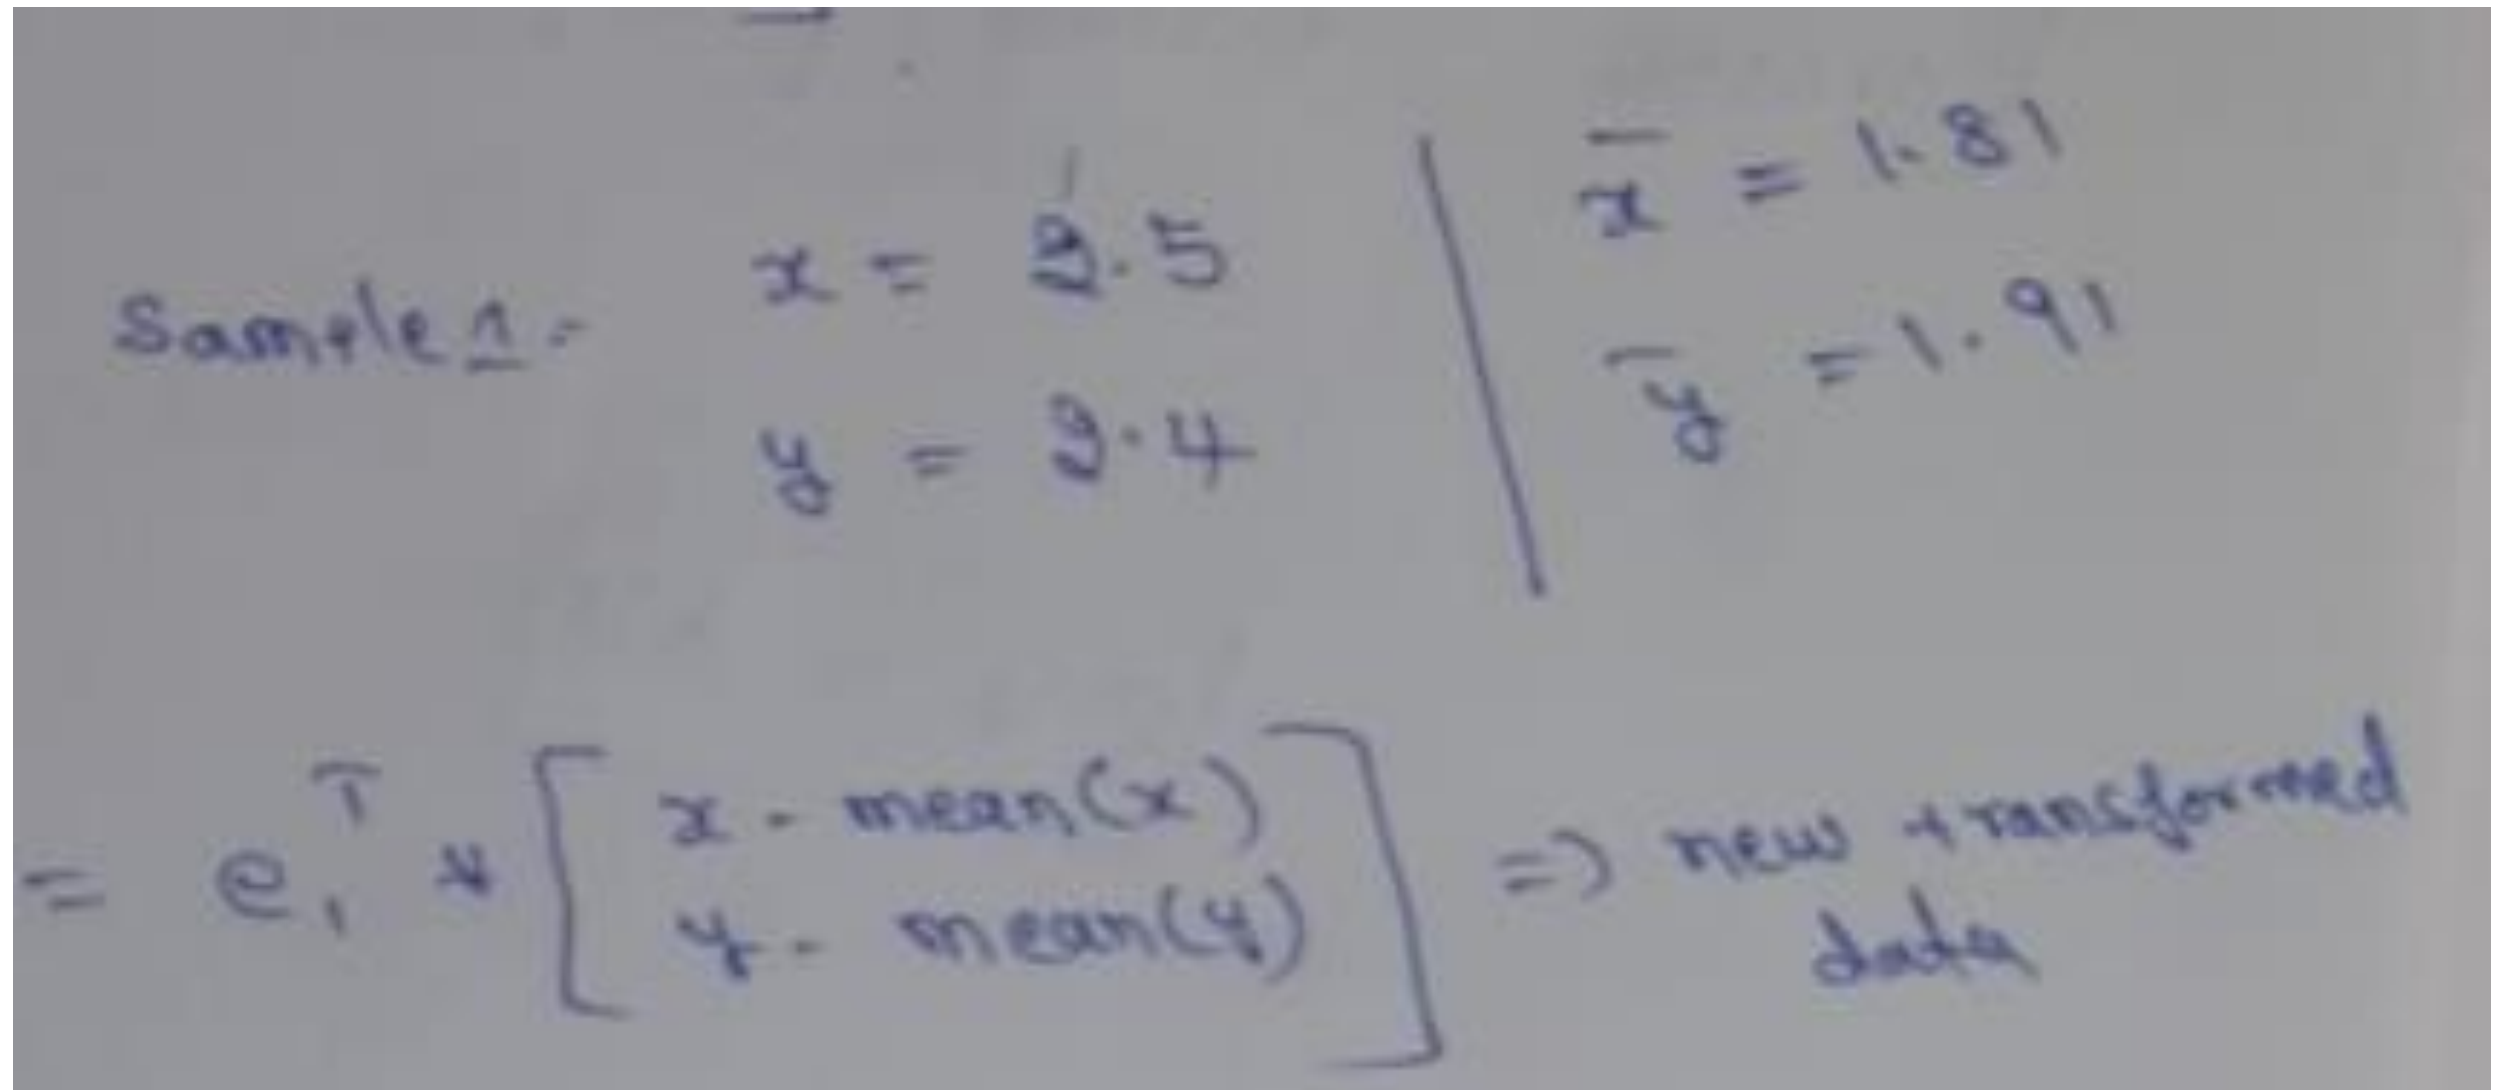 Sample 1- x = 2.5
y = 2.4
x̄ = 1.81
ȳ = 1.91
= e₁ᵀ * [ x - mean(x)
y - mean(y) ] => new transformed
data